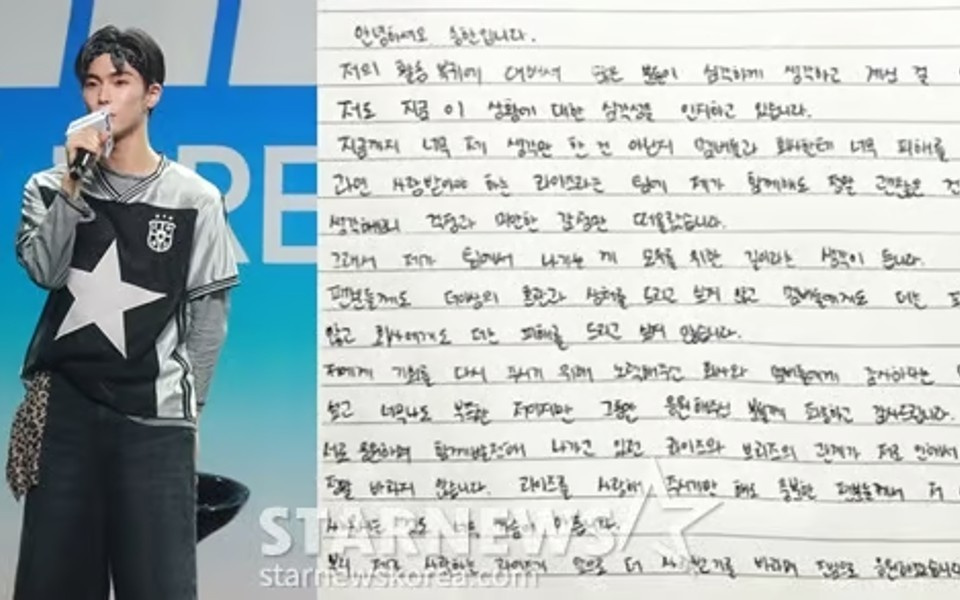 RE
안녕하세요 승한입니다.
저의 활동 복귀에 대해서 많은 분들이 심각하게 생각하고 계신 걸
저도 지금 이 상황에 대한 심각성을 인지하고 있습니다.
지금까지 너무 제 생각만 한 건 아닌지 멤버들과 회사한테 너무 피해를
과연 사랑받아야 하는 라이즈라는 팀에 제가 함께해도 정말 괜찮은
생각해보니 걱정과 미안한 감정만 떠올랐습니다.
그래서 제가 팀에서 나가는 게 모두를 위한 길이라는 생각이 듭니다.
팬분들께도 더이상의 혼란과 상처를 드리고 싶지 않고 멤버들에게도 더는
않고 회사에게도 더는 피해를 드리고 싶지 않습니다.
저에게 기회를 다시 주시기 위해 노력해주신 회사와 멤버들에게 감사하다는
싶고 너무나도 부족한 저이지만 그동안 응원해주신 분들께 죄송하고 감사드립니다.
서로 응원하며 함께 발전해 나가고 있던 라이즈와 브리즈의 관계가 저로 인해서
정말 바라지 않습니다. 라이즈를 사랑해 주시기만 해도 충분한 팬분들께서 저
너무 가슴이 아픕니다.
부디 제가 사랑하는 라이즈가 앞으로 더 사랑받기를 바라며 진심으로 응원하겠습니다
STARNEWS
starnewskorea.com